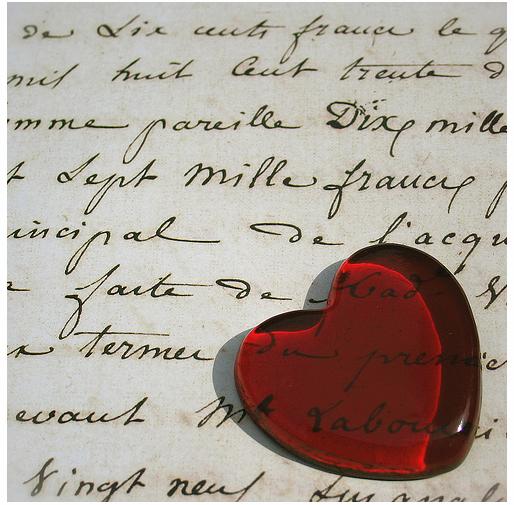 de Six cents francs le
mil huit Cent trente d
omme pareille Dix mille
t Sept mille francs p
incipal de l'acqu
faite de Mad. V
termes du premie
evant Mt Labou
Vingt neuf